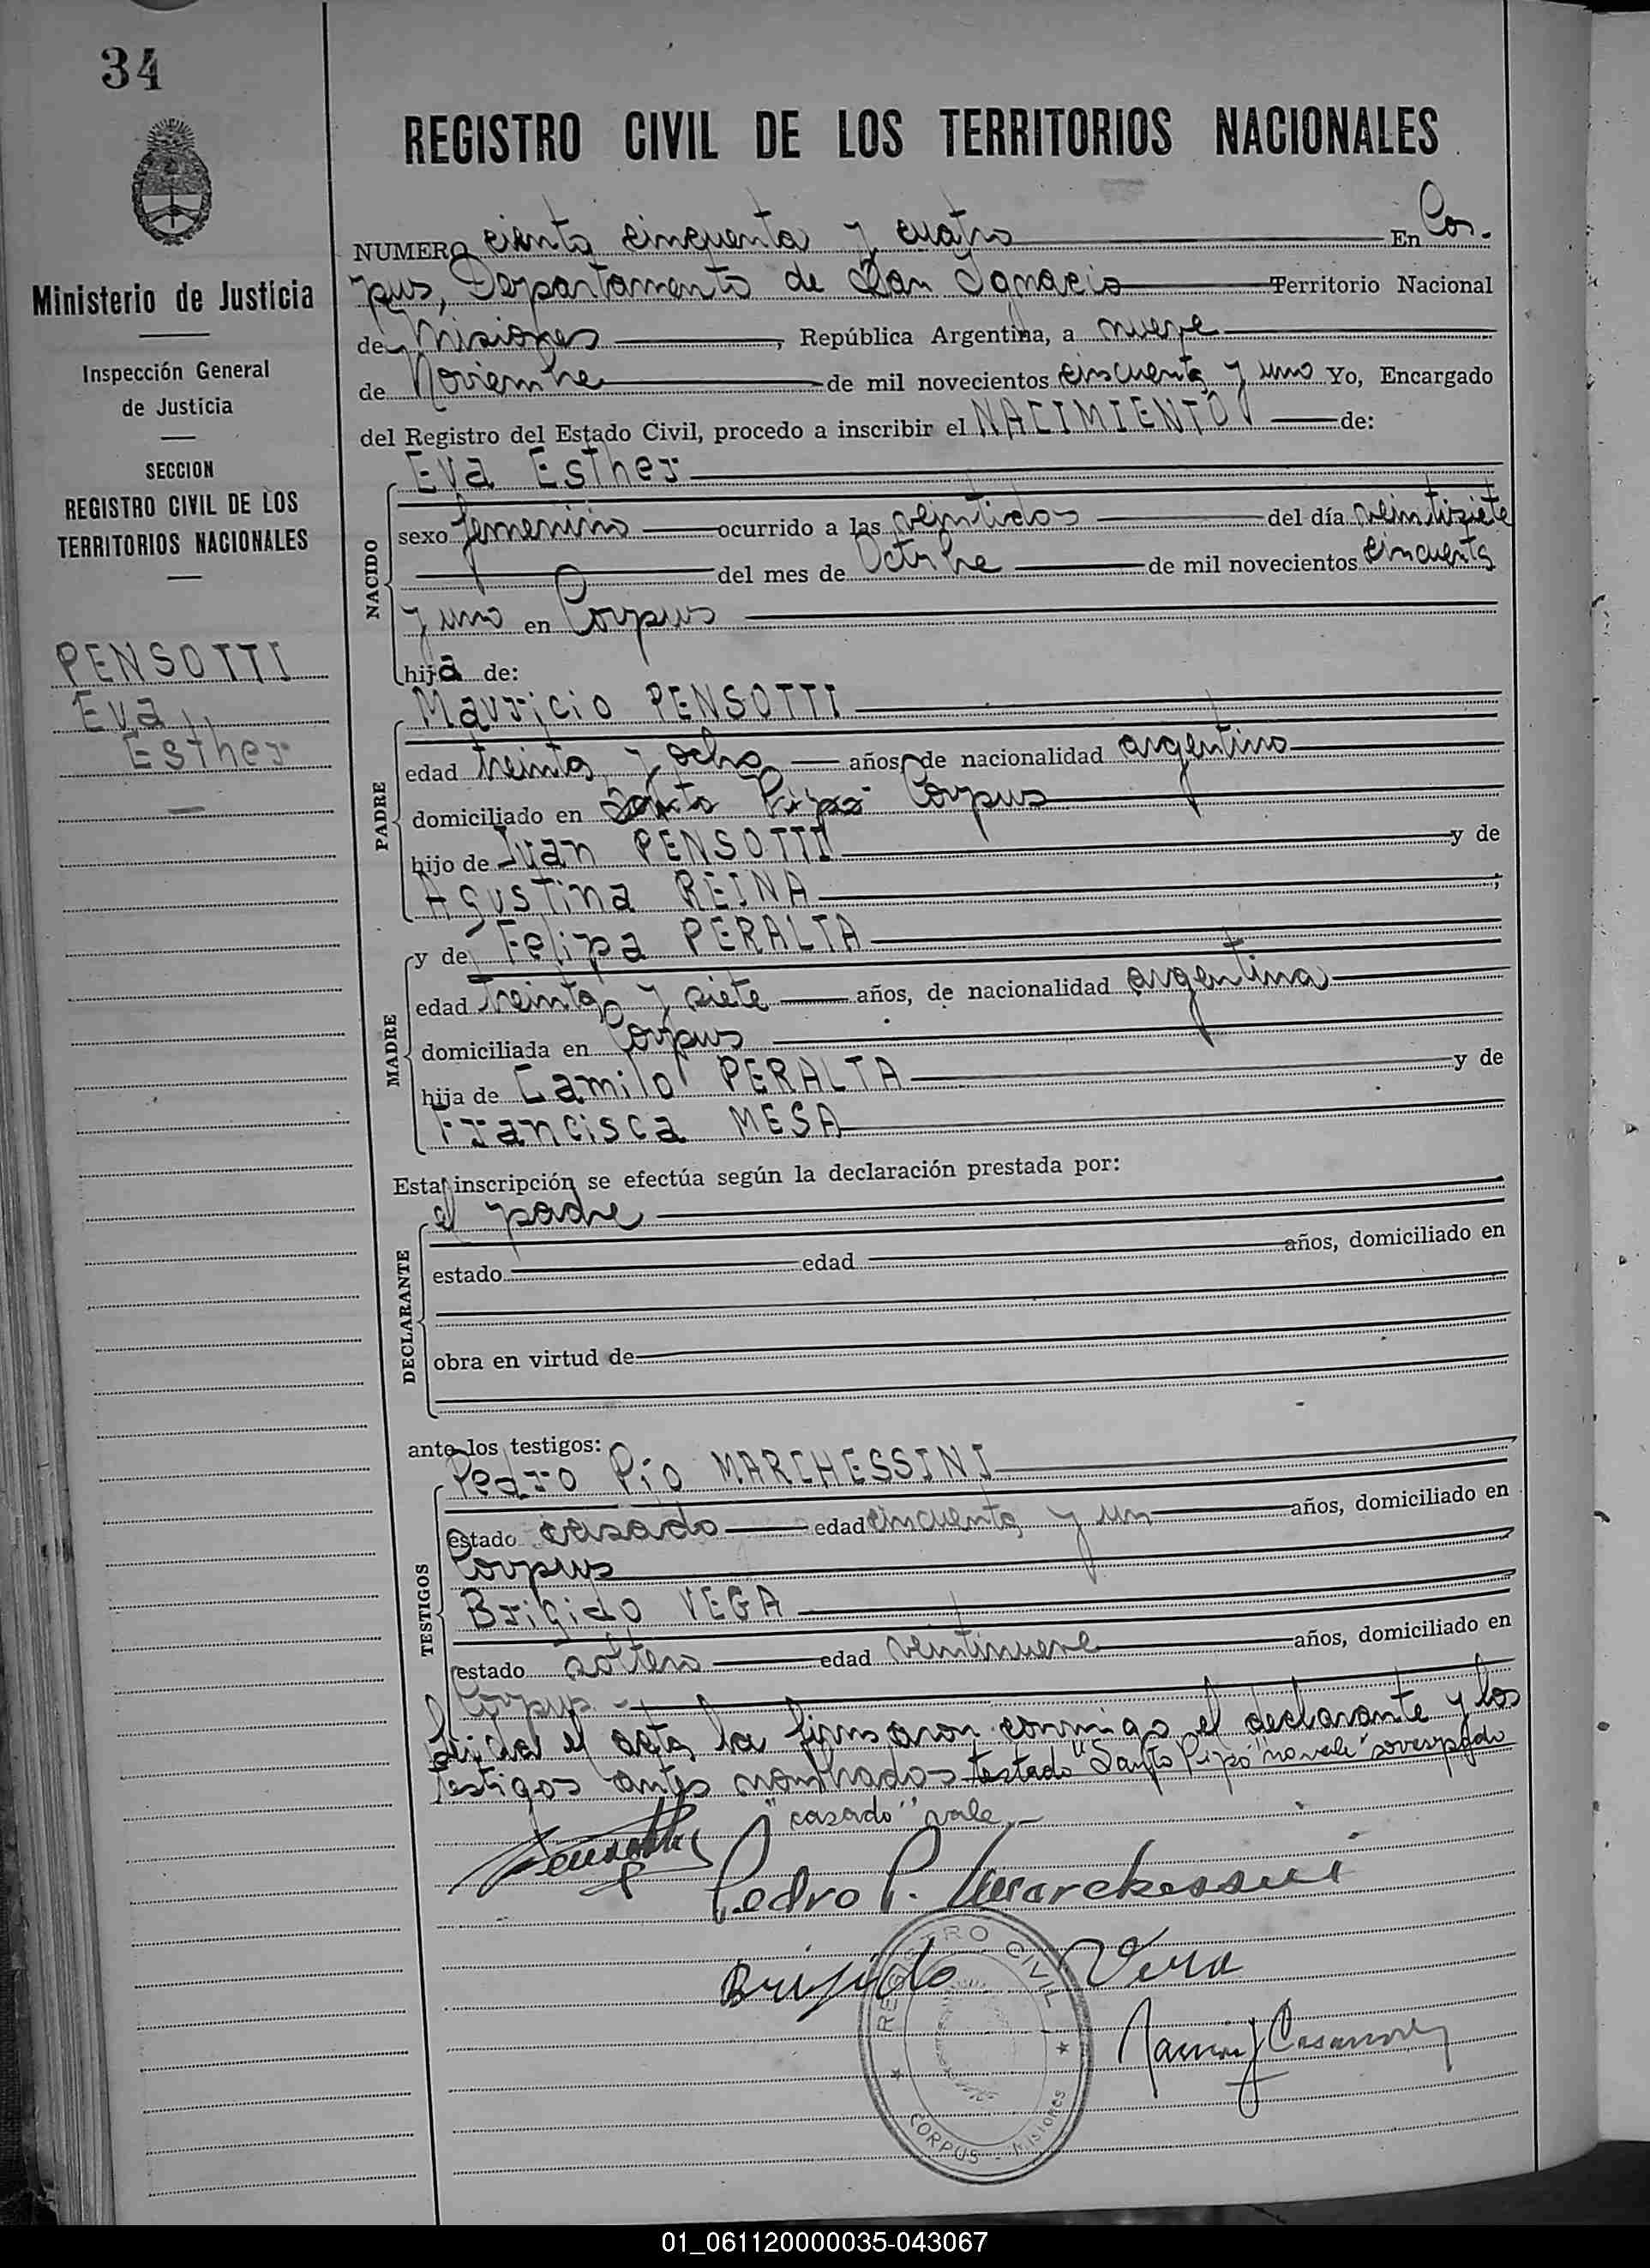 34
REGISTRO CIVIL DE LOS TERRITORIOS NACIONALES
Ministerio de Justicia
Inspección General
de Justicia
SECCION
REGISTRO CIVIL DE LOS
TERRITORIOS NACIONALES
PENSOTTI
Eva
Esther
NUMERO ciento cincuenta y cuatro En Cor-
pus, Departamento de San Ignacio Territorio Nacional
de Misiones, República Argentina, a nueve
de Noviembre de mil novecientos cincuenta y uno Yo, Encargado
del Registro del Estado Civil, procedo a inscribir el NACIMIENTO de:
NACIDO
Eva Esther
sexo femenino ocurrido a las veintidos del día veintisiete
del mes de Octubre de mil novecientos cincuenta
y uno en Corpus
hija de:
PADRE
Mauricio PENSOTTI
edad treinta y ocho años, de nacionalidad argentino
domiciliado en Santo Pipó Corpus
hijo de Juan PENSOTTI y de
Agustina REINA;
MADRE
y de Felipa PERALTA
edad treinta y siete años, de nacionalidad argentina
domiciliada en Corpus
hija de Camilo PERALTA y de
Francisca MESA
Esta inscripción se efectúa según la declaración prestada por:
DECLARANTE
el padre
estado edad años, domiciliado en
obra en virtud de
ante los testigos:
TESTIGOS
Pedro Pío MARCHESSINI
estado casado edad cincuenta y un años, domiciliado en
Corpus
Brigido VEGA
estado soltero edad veintinueve años, domiciliado en
Corpus.-
Leída el acta, la firmaron conmigo el declarante y los
testigos antes nombrados testado "Santo Pipó" no vale
"casado" vale.-
Pensotti
Pedro P. Marchessini
REGISTRO CIVIL
CORPUS - Misiones
01_061120000035-043067